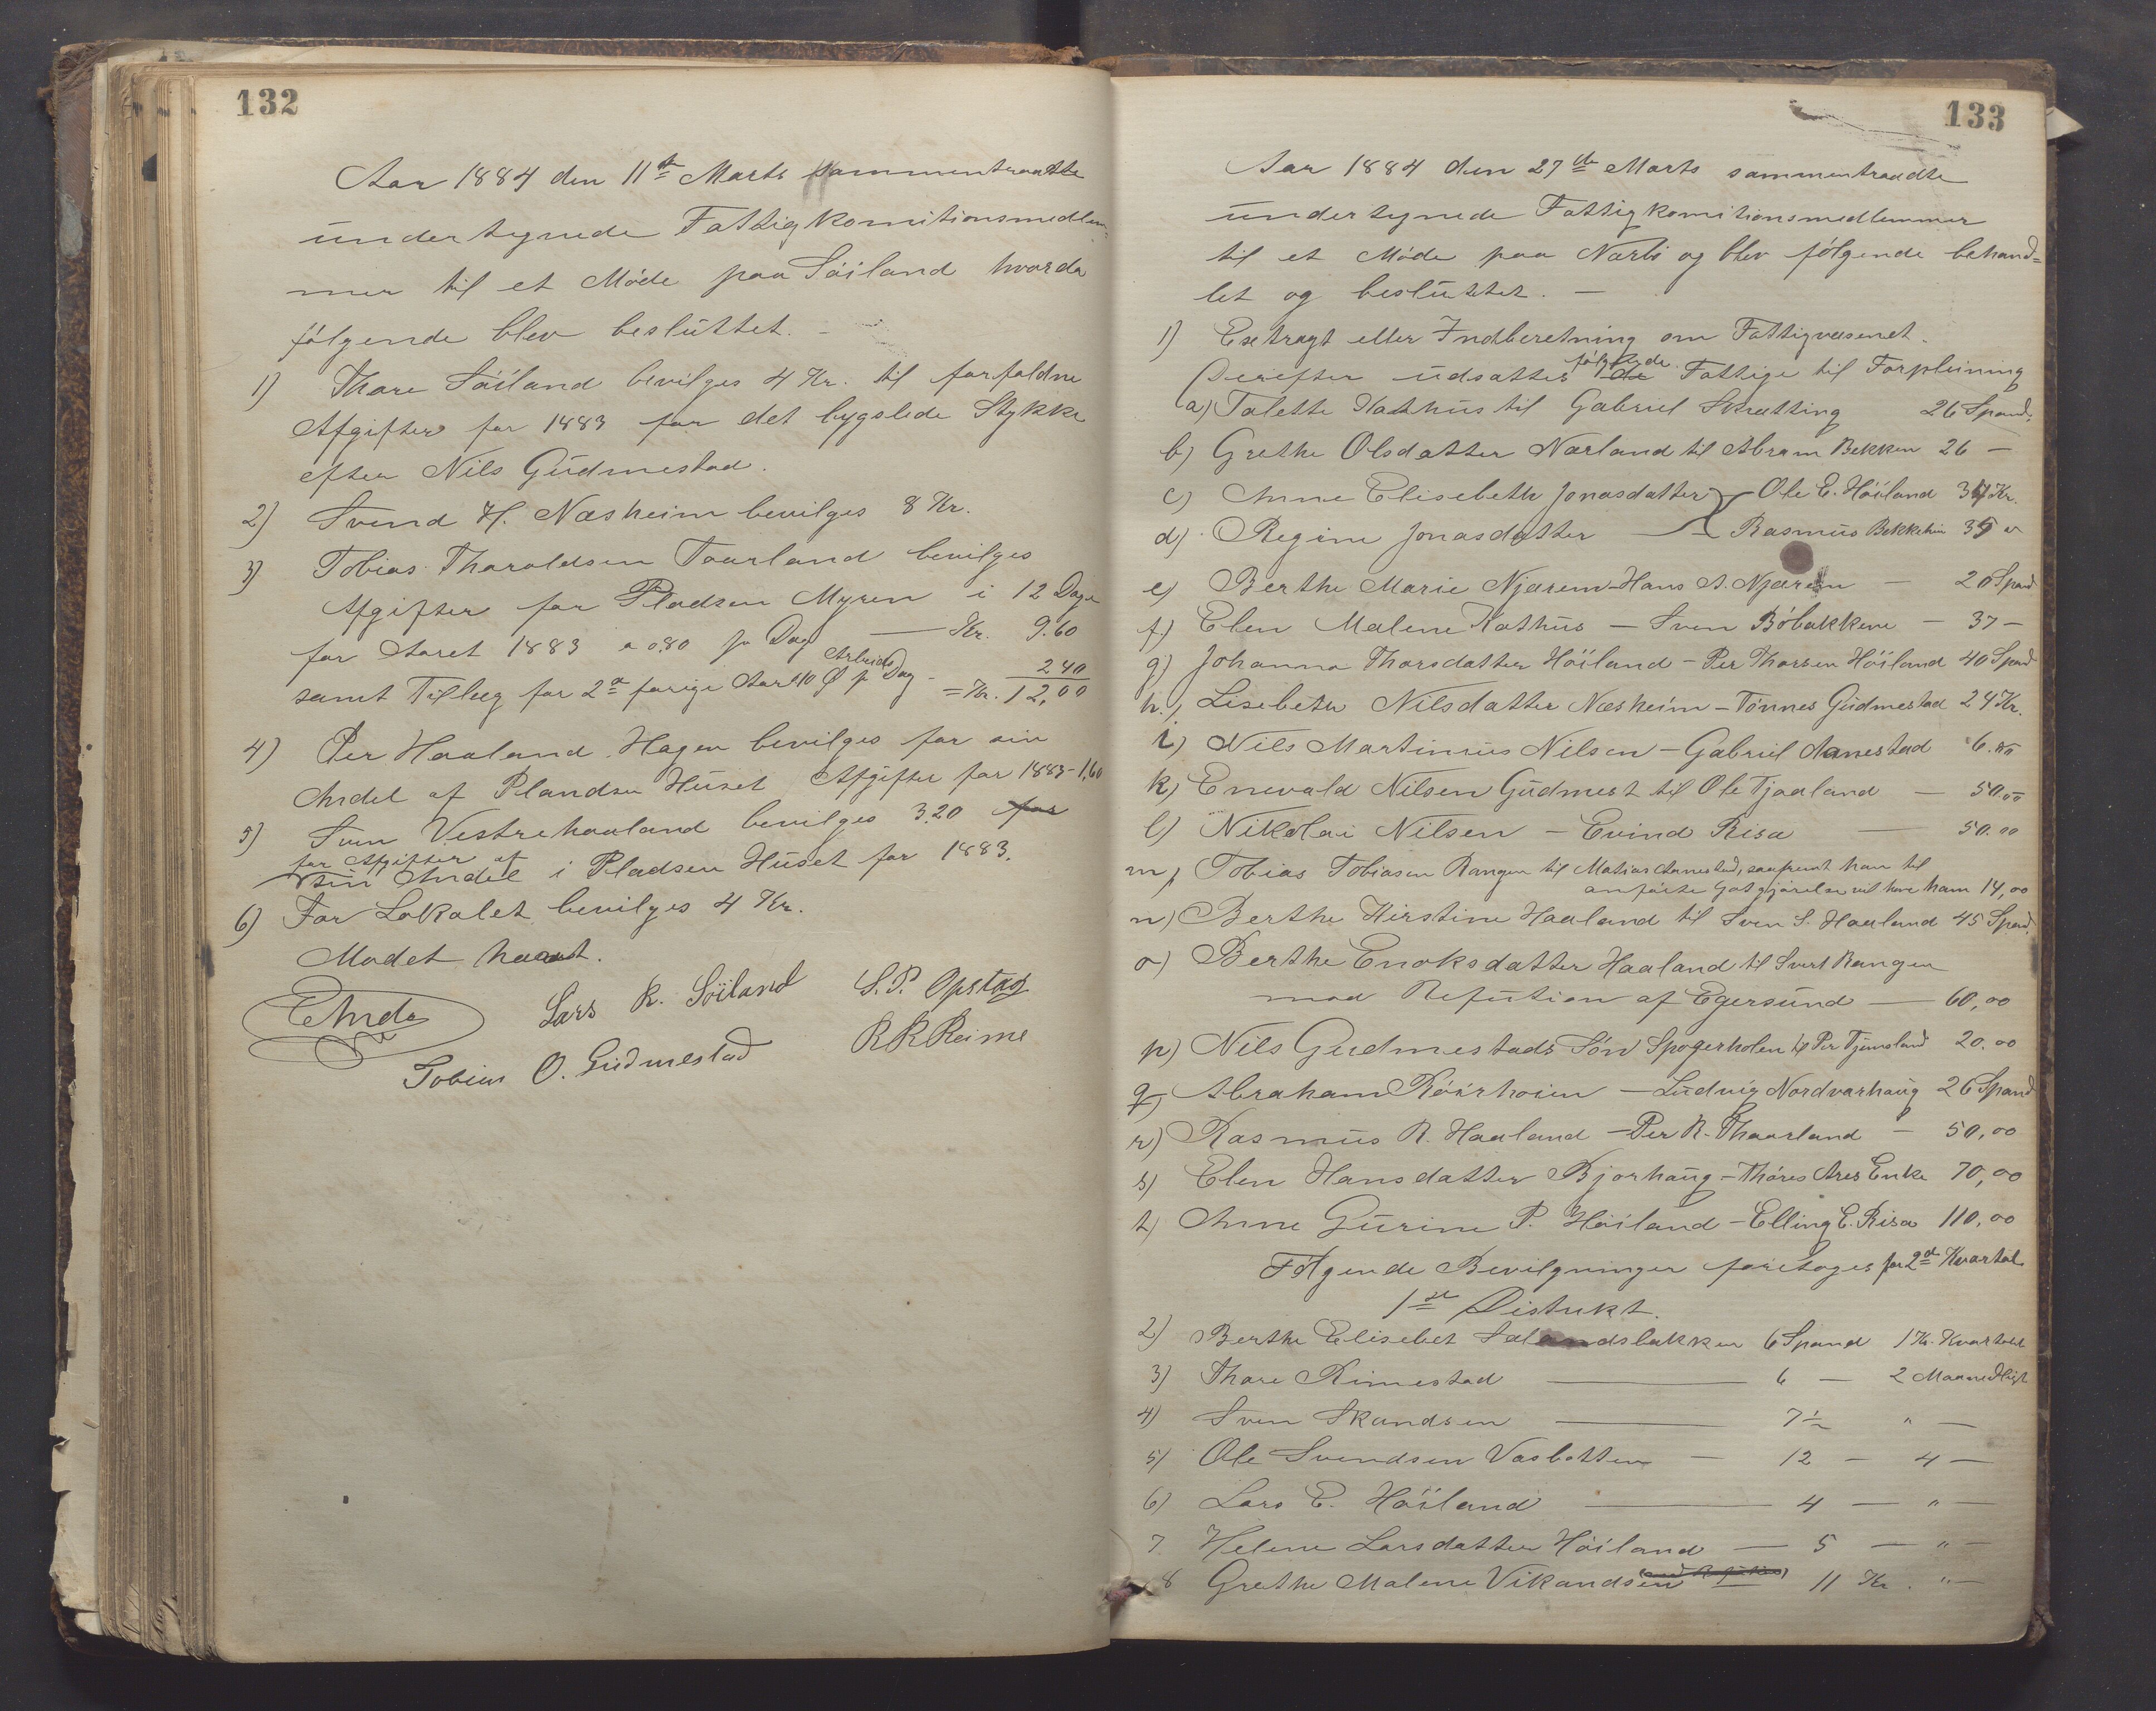 132
Aar 1884 den 11te Marts sammentraadte
undertegnede Fattigkomitionsmedlem-
mer til et Møde paa Søiland hvorda
følgende blev besluttet. -
1) Thore Søiland bevilges 4 Kr. til forfaldne
Afgifter for 1883 for det bygslede Stykke
efter Nils Gudmestad.
2) Svend H. Næsheim bevilges 8 Kr.
3) Tobias Tharaldsen Taarland bevilges
Afgifter for Pladsen Myren i 12 Dage
for Aaret 1883 a 0.80 pr Dag — Kr. 9.60
samt Tillæg for 2de forige Aar 10 Ø pr Arbeids Dag - 240
= Kr. 12,00
4) Per Haaland Hagen bevilges for sin
Andel af Plandsen Huset Afgifter for 1883 - 1,60
5) Sven Vestrehaaland bevilges 3.20 for
for Afgifter af
sin Andel i Pladsen Huset for 1883.
6) For Lokalet bevilges 4 Kr.
Mødet hævet.
Lars R. Söiland S. P. Opstad
Tobias O. Gudmestad RRReime
133
Aar 1884 den 27de Marts sammentraadte
undertegnede Fattigkomitionsmedlemmer
til et Møde paa Nærbø og blev følgende behand=
let og besluttet. —
1) Extragt eller Indberetning om Fattigvæsenet.
Derefter udsattes følgende de Fattige til Forpleining
a) Talette Kathus til Gabriel Skrætting 26 Spand.
b) Grethe Olsdatter Nærland til Abram Bekken 26 —
c) Anne Elisebeth Jonasdatter — Ole E. Höiland 34 Kr.
d) Regine Jonasdatter — Rasmus Bekkehien 35 "
e) Berthe Marie Njærem - Hans A. Njærem — 20 Spand
f) Elen Malene Kathus — Sven Bøbakkene — 37 —
g) Johanna Thorsdatter Höiland - Per Thorsen Höiland 40 Spand
h.) Lisebeth Nilsdatter Næsheim - Tönnes Gudmestad 24 Kr.
i) Nils Martinius Nilsen - Gabriel Aanestad 6.00
k) Enevald Nilsen Gudmest til Ole Tjaaland — 50.00
l) Nikolai Nilsen - Evind Risa — 50.00
m) Tobias Tobiasen Rangen til Matias Aanestad, saafremt han til
anførte Godgjørelse vil have ham 14,00
n) Berthe Kirstine Haaland til Sven S. Haaland 45 Spand.
o) Berthe Enoksdatter Haaland til Sivert Rangen
mod Refution af Egersund — 60,00
p) Nils Gudmestads Søn Spogerholen til Per Tjemsland 20.00
q) Abraham Röirhoien - Ludvig Nordvarhaug 26 Spand
r) Rasmus R. Haaland - Per R. Thaarland - 50,00
s) Elen Hansdatter Bjorhaug - Thøres Ares Enke 70,00
t) Anne Gurine P. Höiland - Elling E. Risa 110,00
Følgende Bevilgninger foretoges for 2det Kvartal
1ste Distrikt.
2) Berthe Elisebet Sælandsbakken 6 Spand 1 Kr. Kvartalet
3) Thore Rimestad — 6 — 2 Maanedligt
4) Sven Skandsen — 7½ " —
5) Ole Svendsen Vasbotten — 12 — 4 —
6) Lars E. Höiland — 4 — " —
7. Helene Larsdatter Höiland — 5 — " —
8 Grethe Malene Vikandsen 11 Kr. " —